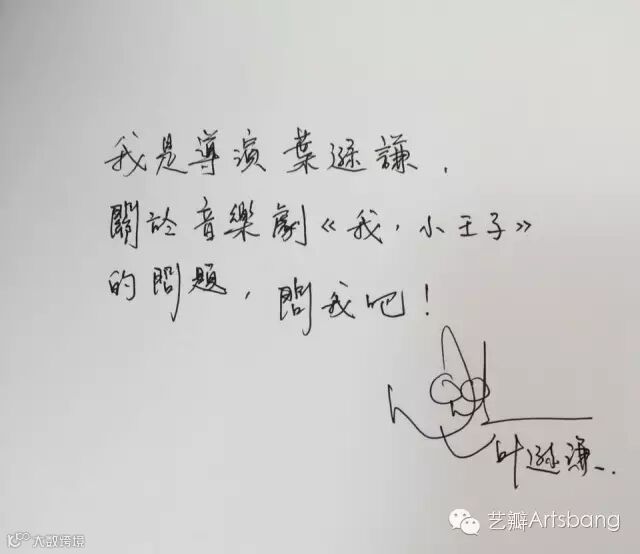 我是導演葉遜謙，
關於音樂劇《我，小王子》
的問題，問我吧！
叶遜谦
艺瓣Artsbang
大数跨境